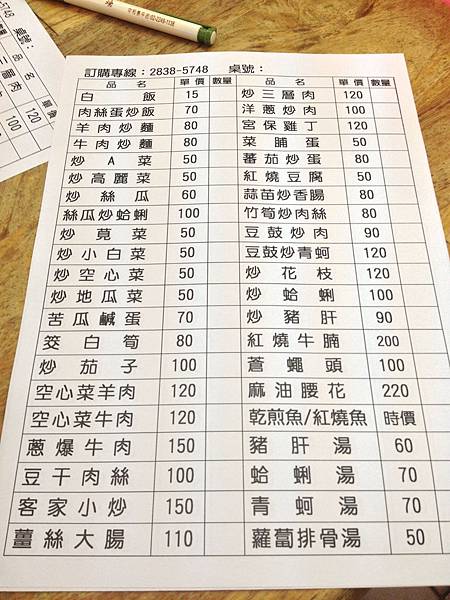 訂購專線：2838-5748 桌號：
品名 單價 數量 品名 單價 數量
白飯 15 炒三層肉 120
肉絲蛋炒飯 70 洋蔥炒肉 100
羊肉炒麵 80 宮保雞丁 120
牛肉炒麵 80 菜脯蛋 50
炒A菜 50 蕃茄炒蛋 80
炒高麗菜 50 紅燒豆腐 50
炒絲瓜 60 蒜苗炒香腸 80
絲瓜炒蛤蜊 100 竹筍炒肉絲 80
炒莧菜 50 豆鼓炒肉 90
炒小白菜 50 豆鼓炒青蚵 120
炒空心菜 50 炒花枝 120
炒地瓜菜 50 炒蛤蜊 100
苦瓜鹹蛋 70 炒豬肝 90
筊白筍 80 紅燒牛腩 200
炒茄子 100 蒼蠅頭 100
空心菜羊肉 120 麻油腰花 220
空心菜牛肉 120 乾煎魚/紅燒魚 時價
蔥爆牛肉 150 豬肝湯 60
豆干肉絲 100 蛤蜊湯 70
客家小炒 150 青蚵湯 70
薑絲大腸 110 蘿蔔排骨湯 50